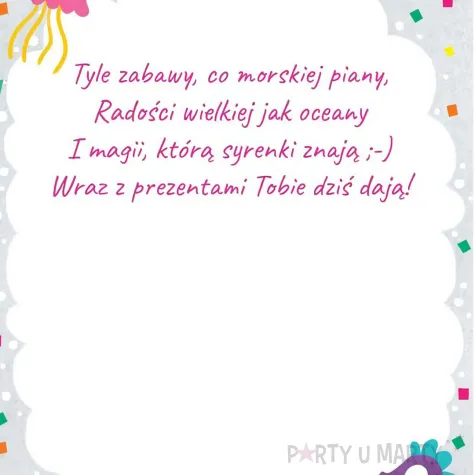 Tyle zabawy, co morskiej piany,
Radości wielkiej jak oceany
I magii, którą syrenki znają ;-)
Wraz z prezentami Tobie dziś dają!
PARTY U MARTY